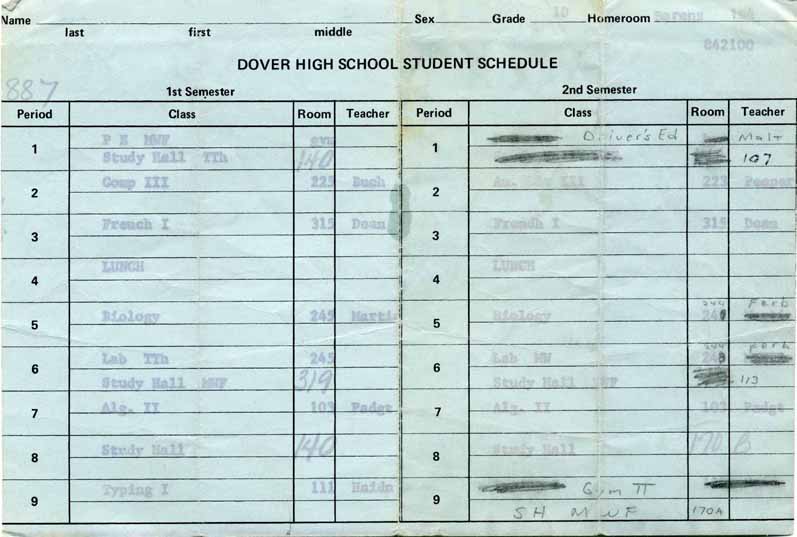 Name Sex Grade 10 Homeroom
last first middle
842100
DOVER HIGH SCHOOL STUDENT SCHEDULE
887
1st Semester 2nd Semester
Period Class Room Teacher Period Class Room Teacher
1 P E MWF gym 1 Driver's Ed Malt
Study Hall TTh 140 107
2 Comp III 225 Buch 2 III 223
3 French I 315 Doan 3 French I 315 Doan
4 LUNCH 4 LUNCH
244 Ferb
5 Biology 245 Marti 5 Biology
244 Ferb
6 Lab TTh 245 6 Lab MW
Study Hall MWF 319 Study Hall 113
7 Alg. II 103 Padgt 7 Alg. II 103 Padgt
8 Study Hall 140 8 Study Hall 170 B
9 Typing I 111 Haidn 9 Gym II
SH MWF 170A